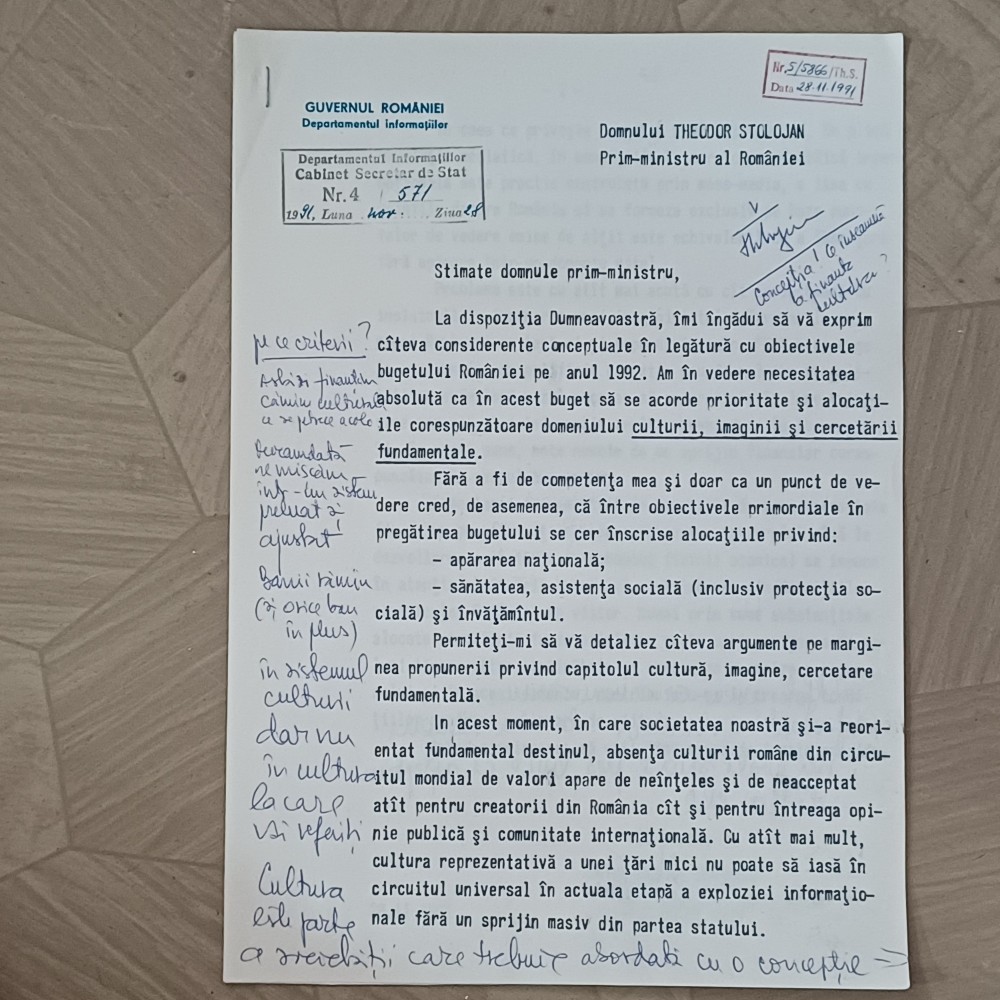 Nr. 5/5866/Th.S.
Data 28.11.1991
GUVERNUL ROMÂNIEI
Departamentul informațiilor
Domnului THEODOR STOLOJAN
Prim-ministru al României
Departamentul Informațiilor
Cabinet Secretar de Stat
Nr. 4 / 571
1991, Luna nov. Ziua 28
Concepția! Ce înseamnă
a finanța
cultura?
Stimate domnule prim-ministru,
La dispoziţia Dumneavoastră, îmi îngădui să vă exprim
cîteva considerente conceptuale în legătură cu obiectivele
bugetului României pe anul 1992. Am în vedere necesitatea
absolută ca în acest buget să se acorde prioritate şi alocaţi-
ile corespunzătoare domeniului culturii, imaginii şi cercetării
fundamentale.
Fără a fi de competenţa mea şi doar ca un punct de ve-
dere cred, de asemenea, că între obiectivele primordiale în
pregătirea bugetului se cer înscrise alocaţiile privind:
- apărarea naţională;
- sănătatea, asistenţa socială (inclusiv protecţia so-
cială) şi învăţămîntul.
Permiteţi-mi să vă detaliez cîteva argumente pe margi-
nea propunerii privind capitolul cultură, imagine, cercetare
fundamentală.
In acest moment, în care societatea noastră şi-a reori-
entat fundamental destinul, absenţa culturii române din circu-
itul mondial de valori apare de neînţeles şi de neacceptat
atît pentru creatorii din România cît şi pentru întreaga opi-
nie publică şi comunitate internaţională. Cu atît mai mult,
cultura reprezentativă a unei ţări mici nu poate să iasă în
circuitul universal în actuala etapă a exploziei informaţio-
nale fără un sprijin masiv din partea statului.
pe ce criterii?
Astăzi finanțăm
cămin cultural
ce se petrece acolo
Deocamdată
ne mișcăm
într-un sistem
preluat și
ajustat!
Banii rămîn
(și orice ban
în plus)
în sistemul
culturii
dar nu
în cultura
la care
vă referiți
Cultura
este parte
a societății care trebuie abordată cu o concepție =>